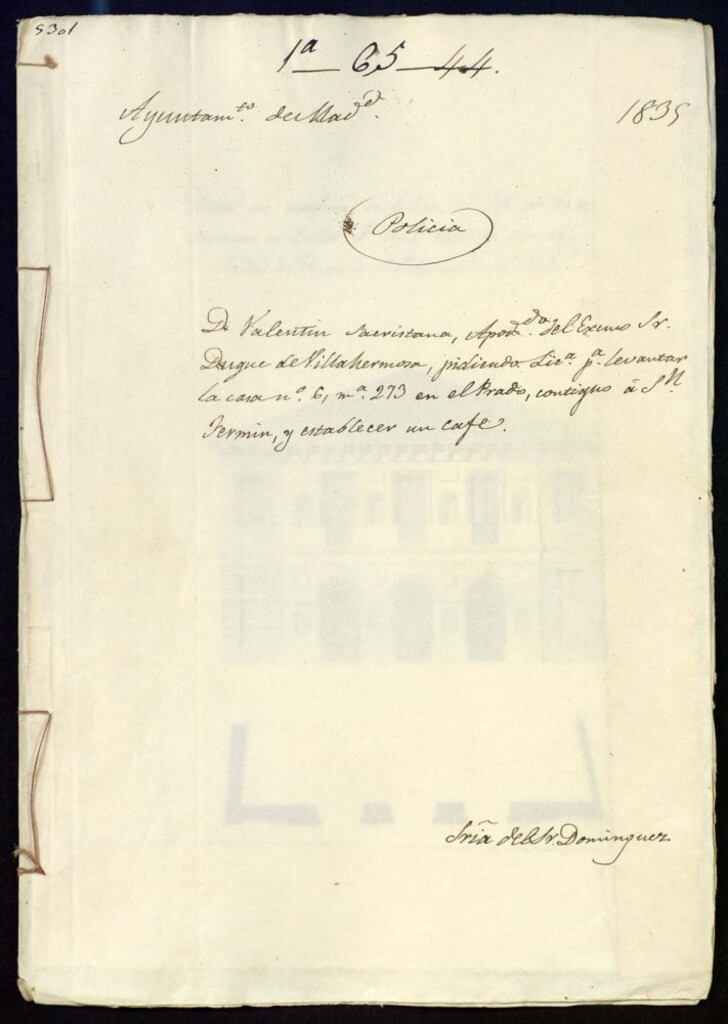 5301
1ª 65 44.
Ayuntam.to de Mad.d 1835
Policia
Dn. Valentin Sacristana, Apod.do del Excmo Sr.
Duque de Villahermosa, pidiendo Lic.ª p.ª levantar
la casa n.º 6, m.ª 273 en el Prado, contiguo á Sn.
Fermin, y establecer un cafe.
Sria del Sr. Dominguez